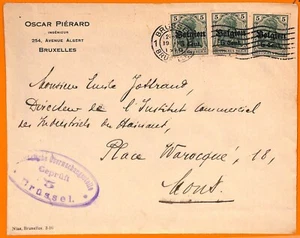 OSCAR PIÉRARD
INGÉNIEUR
254, AVENUE ALBERT
BRUXELLES
Belgien
5 Cent.
Belgien
5 Cent.
Belgien
5 Cent.
Monsieur Emile Jottrand,
Directeur de l'Institut Commercial
des Industriels du Hainaut,
Place Warocqué, 18,
Mons.
Geprüft
Brüssel.